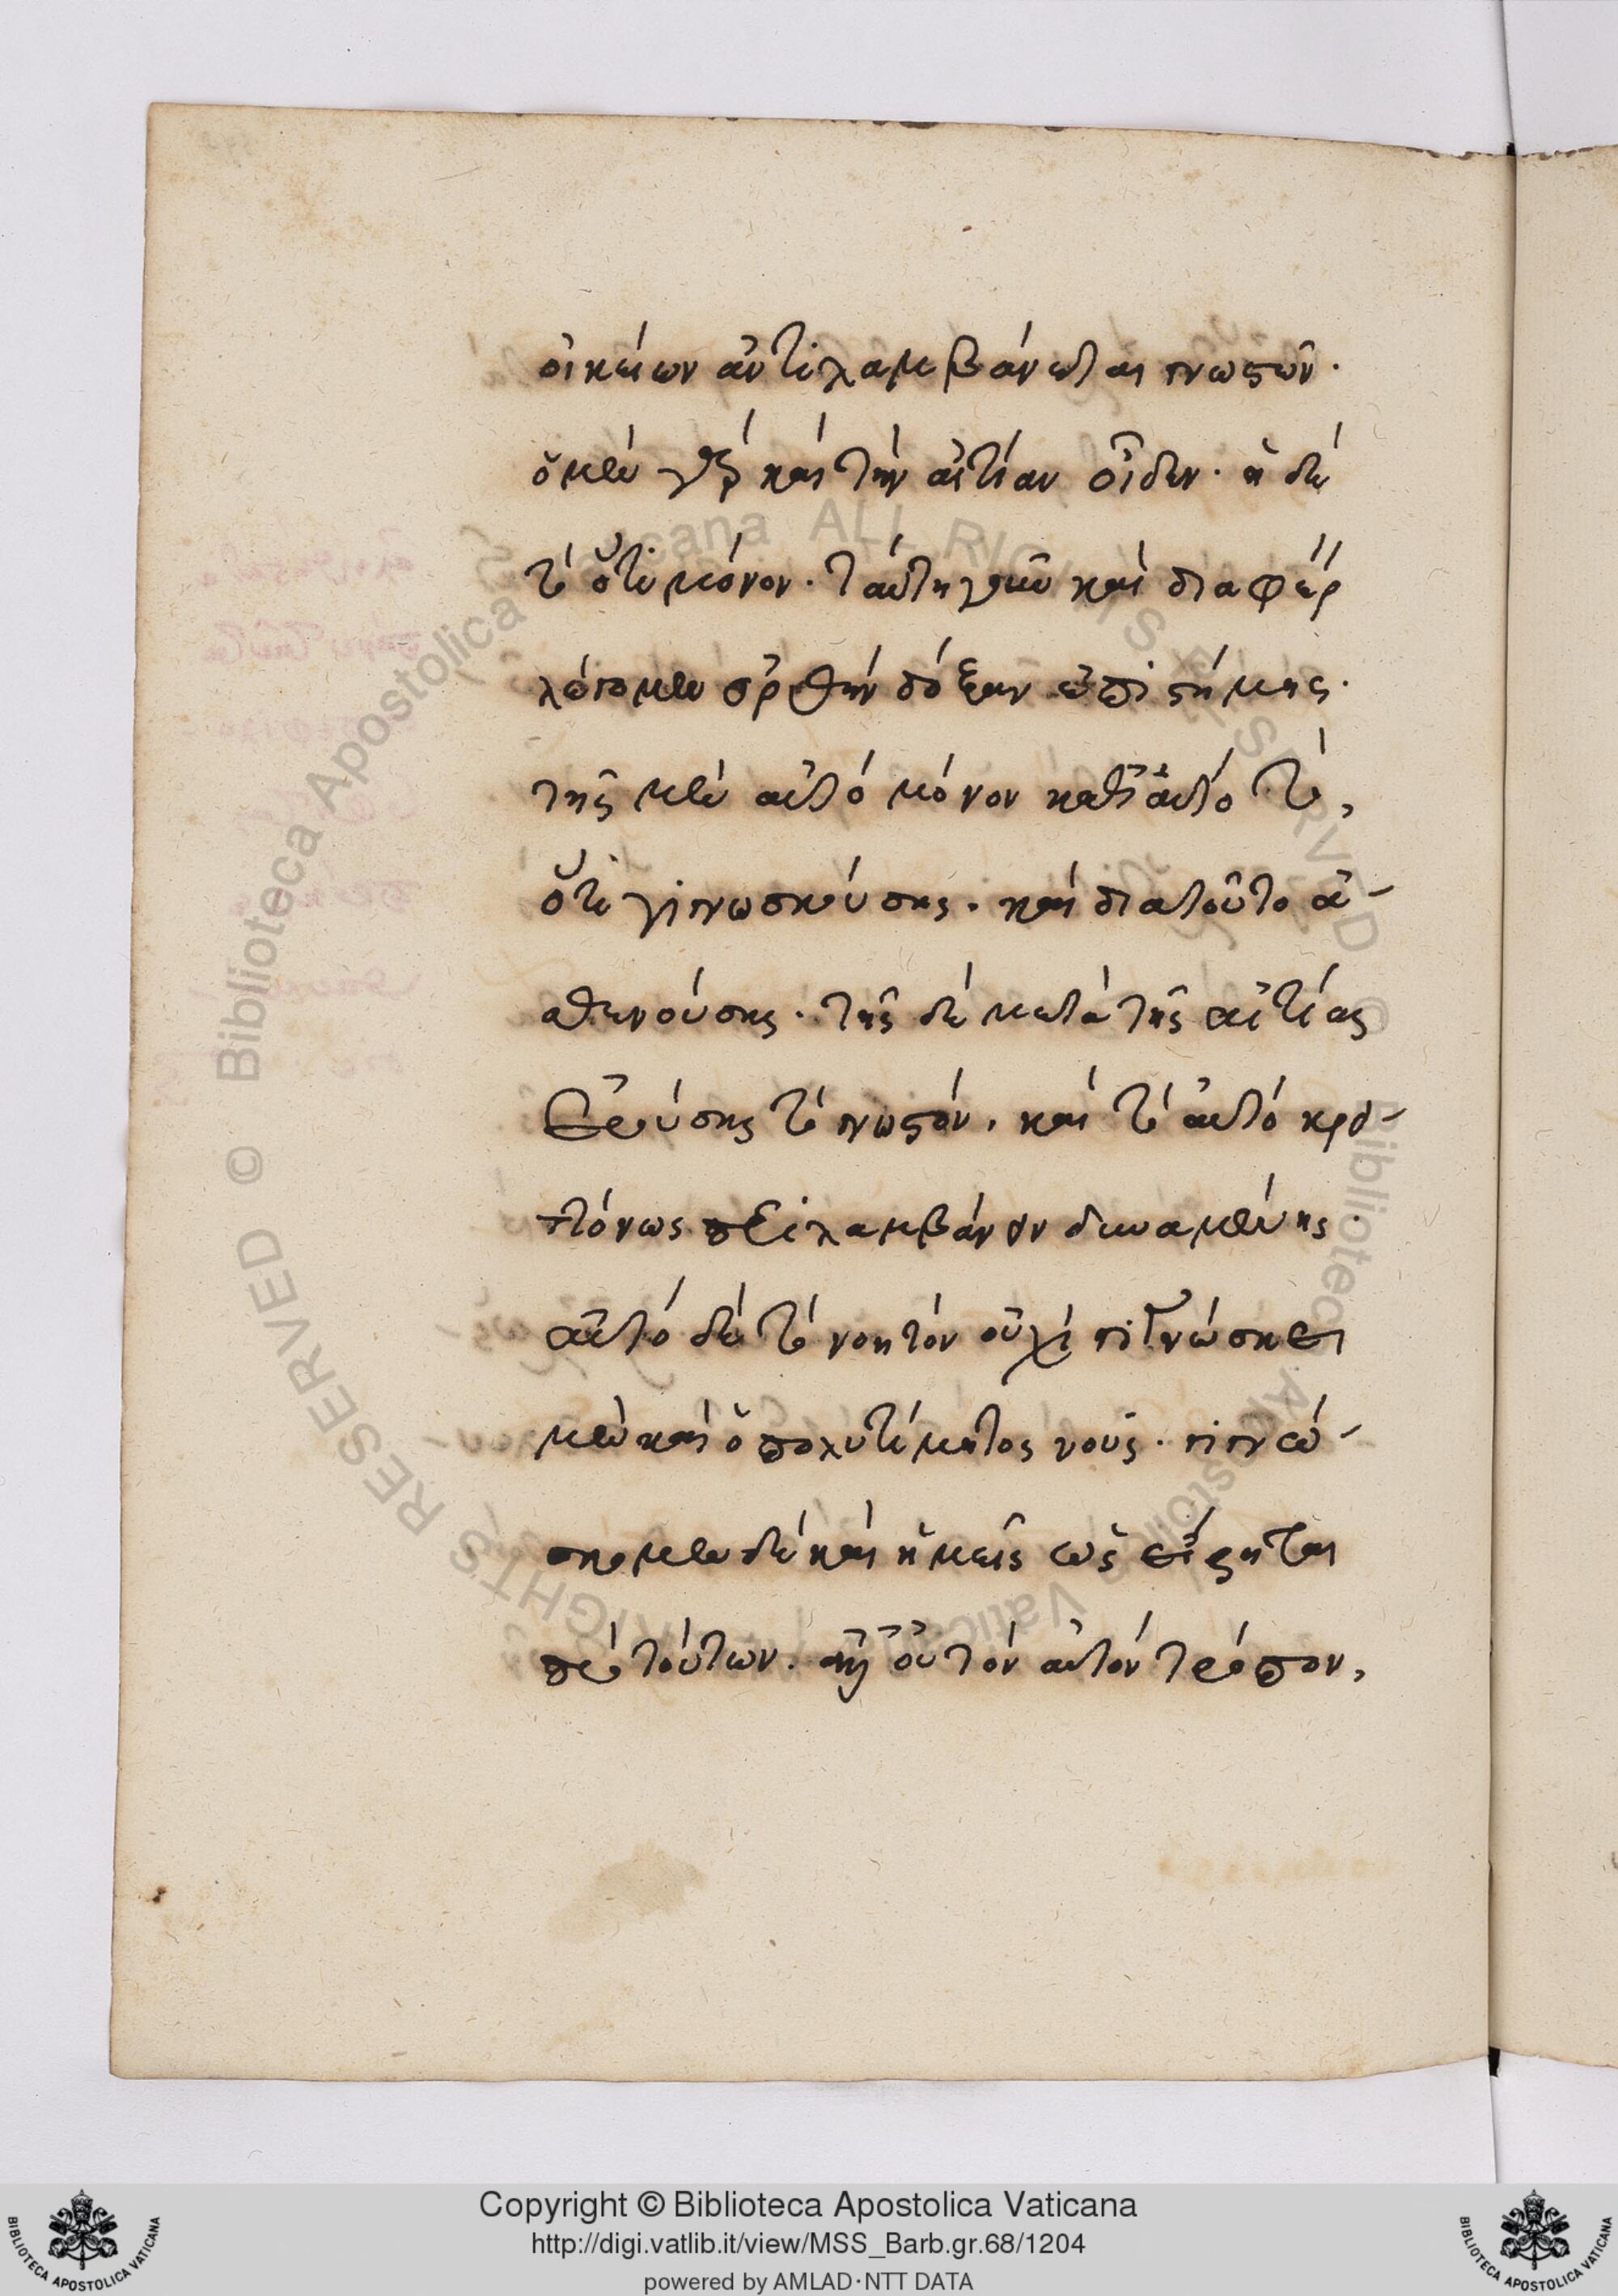 οἰκείων ἀντιλαμβάνεται γνωστῶν.
ὁ μὲν γὰρ καὶ τὴν αἰτίαν οἶδεν. ἡ δὲ
τὸ ὅτι μόνον. ταύτῃ γοῦν καὶ διαφέρ
λέγομεν ὀρθὴν δόξαν ἐπιστήμης.
τῆς μὲν αὐτὸ μόνον κατ' αὐτὸ τὸ,
ὅτι γινωσκούσης. καὶ διατοῦτο ἀ-
σθενούσης. τῆς δὲ μετὰ τῆς αἰτίας
θεωρούσης τὸ γνωστόν. καὶ τὸ αὐτὸ κρει-
ττόνως περιλαμβάνειν δυναμένης.
αὐτὸ δὲ τὸ νοητὸν οὐχὶ γιγνώσκει
μὲν καὶ ὁ πολυτίμητος νοῦς. γιγνώ-
σκομεν δὲ καὶ ἡμεῖς ὡς εἴρηται
πρὸ τούτων. ἀλλ' οὐ τὸν αὐτὸν τρόπον,
Copyright © Biblioteca Apostolica Vaticana
http://digi.vatlib.it/view/MSS_Barb.gr.68/1204
powered by AMLAD·NTT DATA
BIBLIOTECA APOSTOLICA VATICANA
BIBLIOTECA APOSTOLICA VATICANA